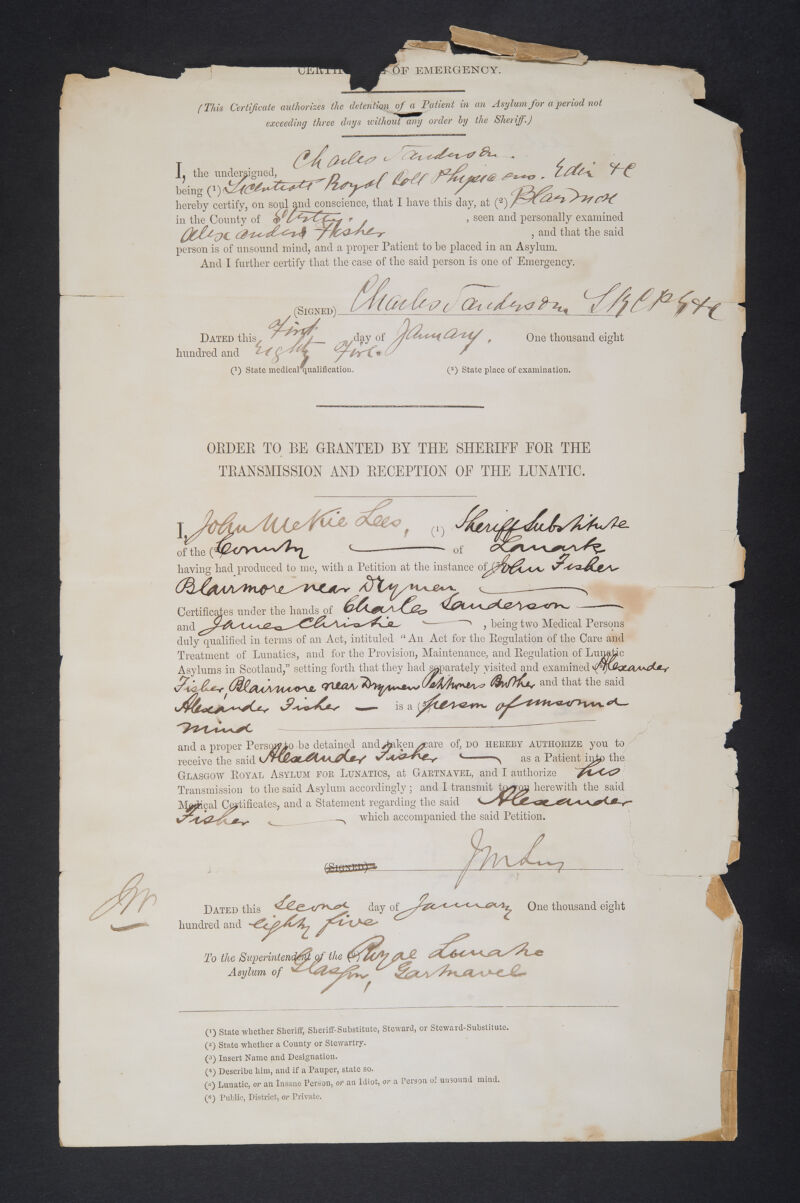 OF EMERGENCY.
(This Certificate authorizes the detention of a Patient in an Asylum for a period not
exceeding three days without any order by the Sheriff.)
I, the undersigned, Charles Sanderson.
being (¹) Licentiate Royal Coll Physicians. Edin &c
hereby certify, on soul and conscience, that I have this day, at (²) Blairmore
in the County of , seen and personally examined
Alexander Fisher , and that the said
person is of unsound mind, and a proper Patient to be placed in an Asylum.
And I further certify that the case of the said person is one of Emergency.
(Signed) Charles Sanderson L R C P E &c
Dated this First day of January. One thousand eight
hundred and Eighty Five.
(¹) State medical qualification. (²) State place of examination.
ORDER TO BE GRANTED BY THE SHERIFF FOR THE
TRANSMISSION AND RECEPTION OF THE LUNATIC.
I, John McKie Lees, (¹) Sheriff Substitute
of the (²) County — of Lanark
having had produced to me, with a Petition at the instance of (³) John Fisher
Blairmore near Drymen —
Certificates under the hands of Charles Sanderson —
and James Christie — , being two Medical Persons
duly qualified in terms of an Act, intituled "An Act for the Regulation of the Care and
Treatment of Lunatics, and for the Provision, Maintenance, and Regulation of Lunatic
Asylums in Scotland," setting forth that they had separately visited and examined (⁴) Alexander
Fisher, Blairmore near Drymen Petitioners Brother and that the said
Alexander Fisher — is a (⁵) person of unsound
mind
and a proper Person to be detained and taken care of, DO HEREBY AUTHORIZE you to
receive the said Alexander Fisher — as a Patient into the
Glasgow Royal Asylum for Lunatics, at Gartnavel, and I authorize his
Transmission to the said Asylum accordingly; and I transmit to you herewith the said
Medical Certificates, and a Statement regarding the said Alexander
Fisher — which accompanied the said Petition.
(Signed)
Dated this second day of January One thousand eight
hundred and eighty five
To the Superintendent of the (⁶) Royal Lunatic
Asylum of Glasgow, Gartnavel
(¹) State whether Sheriff, Sheriff-Substitute, Steward, or Steward-Substitute.
(²) State whether a County or Stewartry.
(³) Insert Name and Designation.
(⁴) Describe him, and if a Pauper, state so.
(⁵) Lunatic, or an Insane Person, or an Idiot, or a Person of unsound mind.
(⁶) Public, District, or Private.